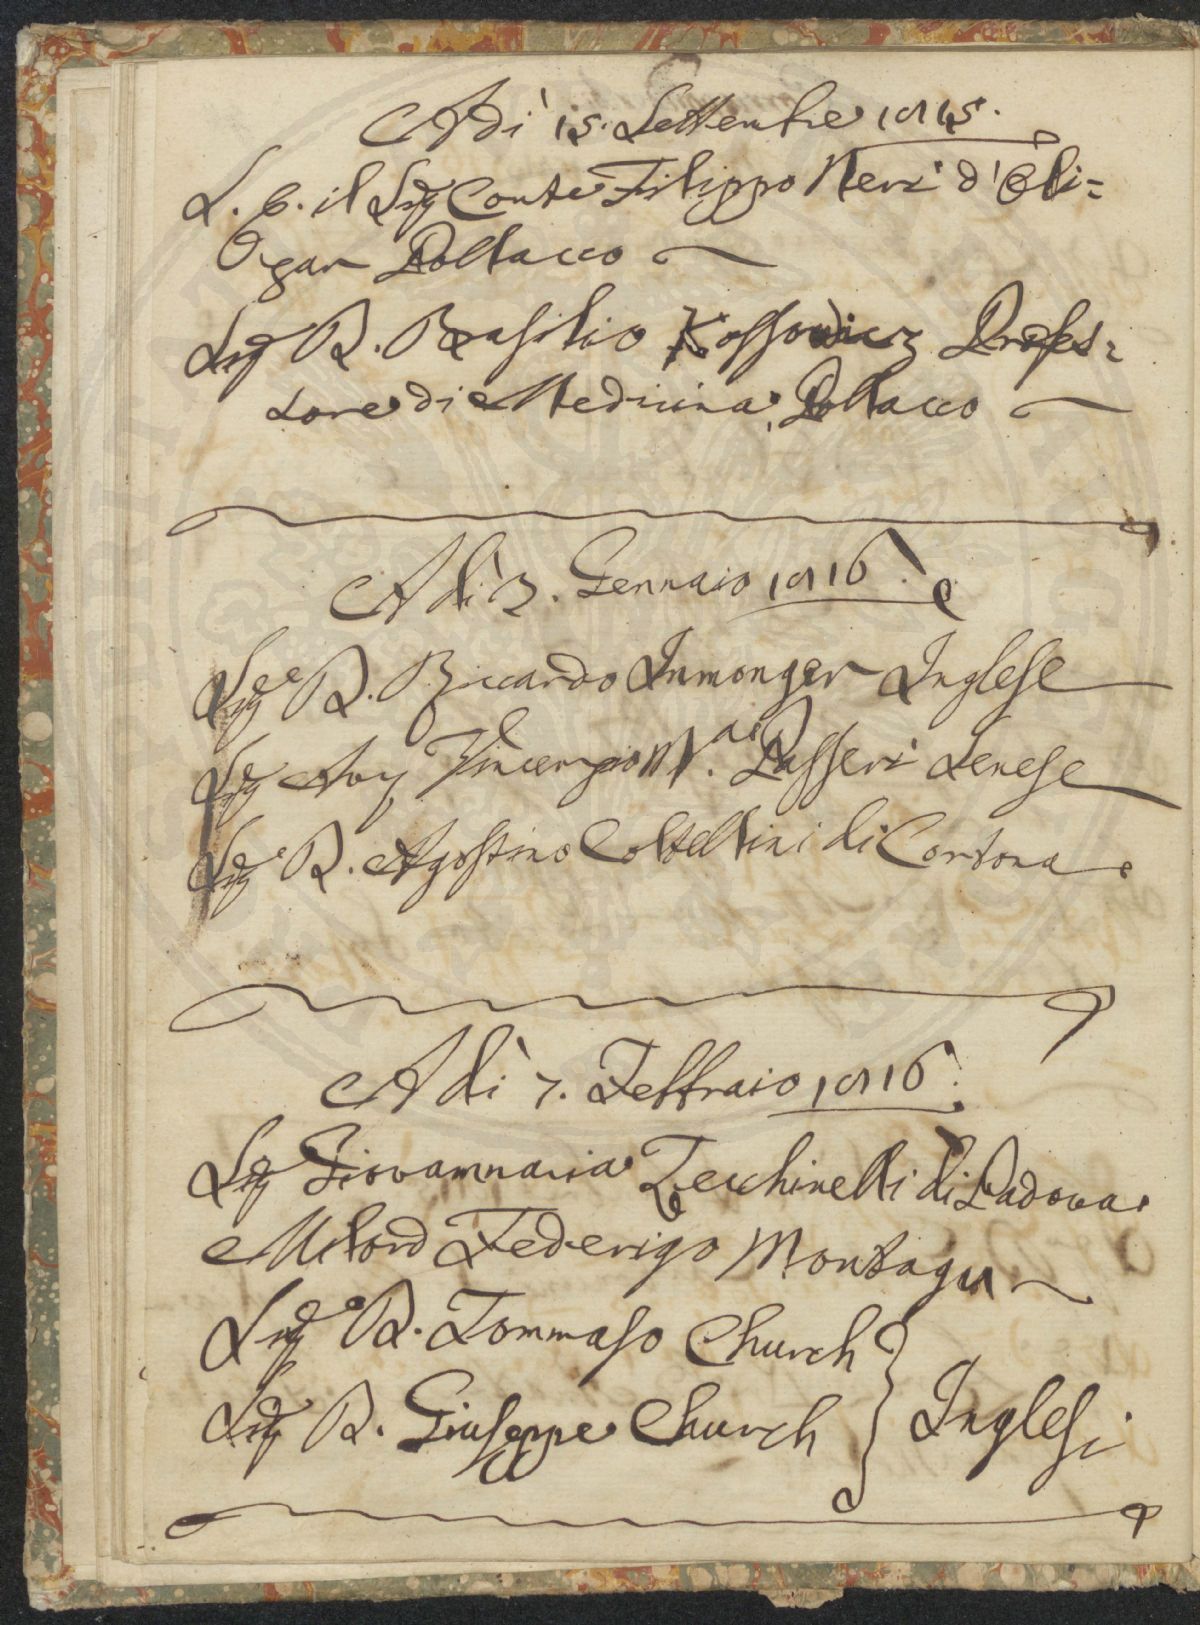 Adì 15. Settembre 1815.
S. E. il Sig Conte Filippo Neri d'Oli=
Ogar Pollacco
Sig D. Basilio Kossowicz Profes=
sore di Medicina, Pollacco
Adì 3. Gennaio 1816.
Sige D. Riccardo Inmonger Inglese
Sig Avv Vincenzio Ma Passeri Senese
Sige D. Agostino Coltellini di Cortona
Adì 7. Febbraio 1816.
Sig Giovanmaria Zecchinelli di Padova
Milord Federigo Montagu
Sige D. Tommaso Church
Sige D. Giuseppe Church } Inglesi